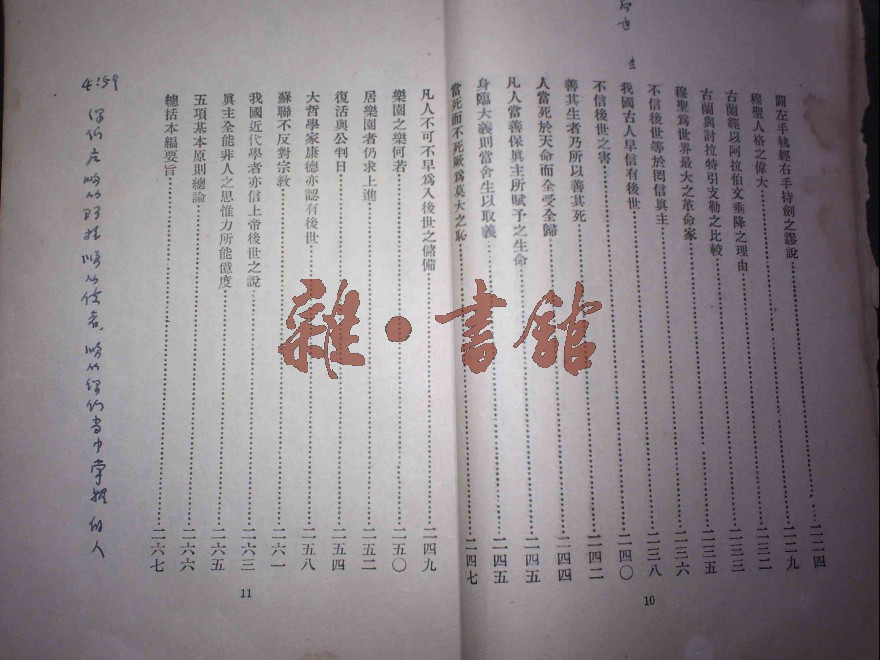 闢左手執經右手持劍之謬說……二二四
穆聖人格之偉大……二二九
古蘭經以阿拉伯文垂降之理由……二三二
古蘭與討拉特引支勒之比較……二三三
穆聖爲世界最大之革命家……二三五
不信後世等於罔信眞主……二三六
我國古人早信有後世……二三八
不信後世之害……二四〇
善其生者乃所以善其死……二四二
人當死於天命而全受全歸……二四四
凡人當善保眞主所賦予之生命……二四五
身臨大義則當舍生以取義……二四五
當死而不死厥爲莫大之恥……二四七
10
凡人不可不早爲入後世之儲備……二四九
樂園之樂何若……二五〇
居樂園者仍求上進……二五二
復活與公判日……二五四
大哲學家康德亦認有後世……二五八
蘇聯不反對宗教……二六一
我國近代學者亦信上帝後世之說……二六三
眞主全能非人之思惟力所能億度……二六五
五項基本原則總論……二六六
總括本編要旨……二六七
11
4:59 你们应顺从阿拉顺从使者、顺从你们当中掌权的人
雜·書館